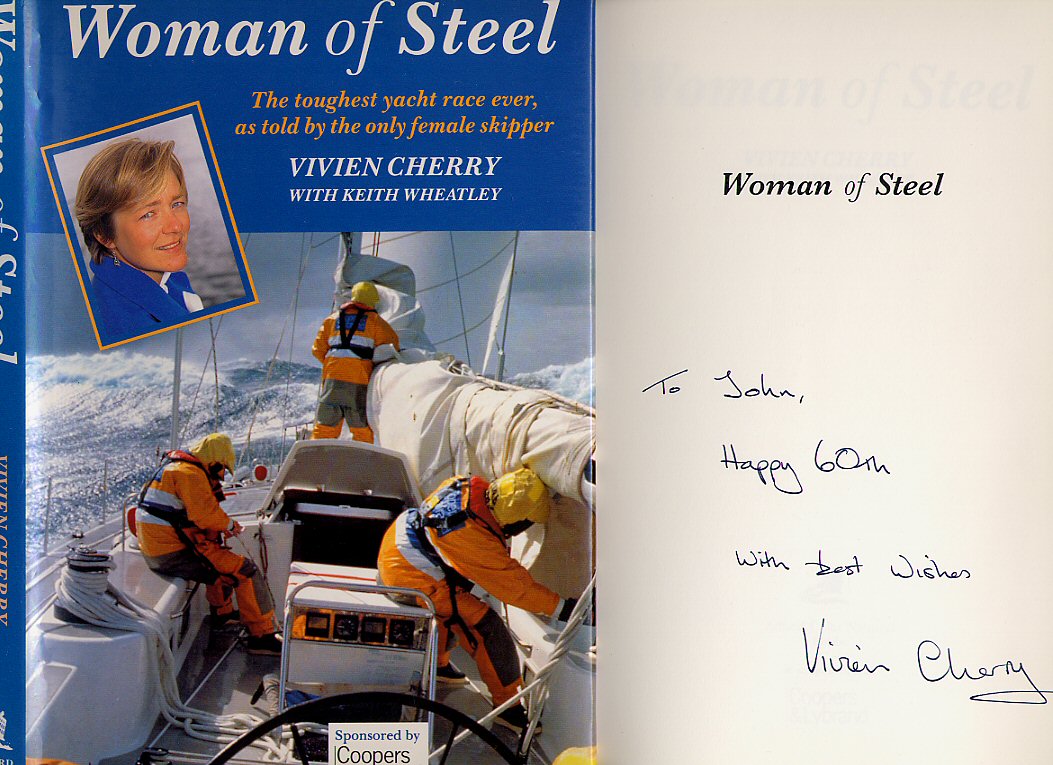 Woman of Steel
VIVIEN CHERRY
Woman of Steel
The toughest yacht race ever,
as told by the only female skipper
VIVIEN CHERRY
WITH KEITH WHEATLEY
Sponsored by
Coopers
Woman of Steel
To John,
Happy 60th
With best Wishes
Vivien Cherry